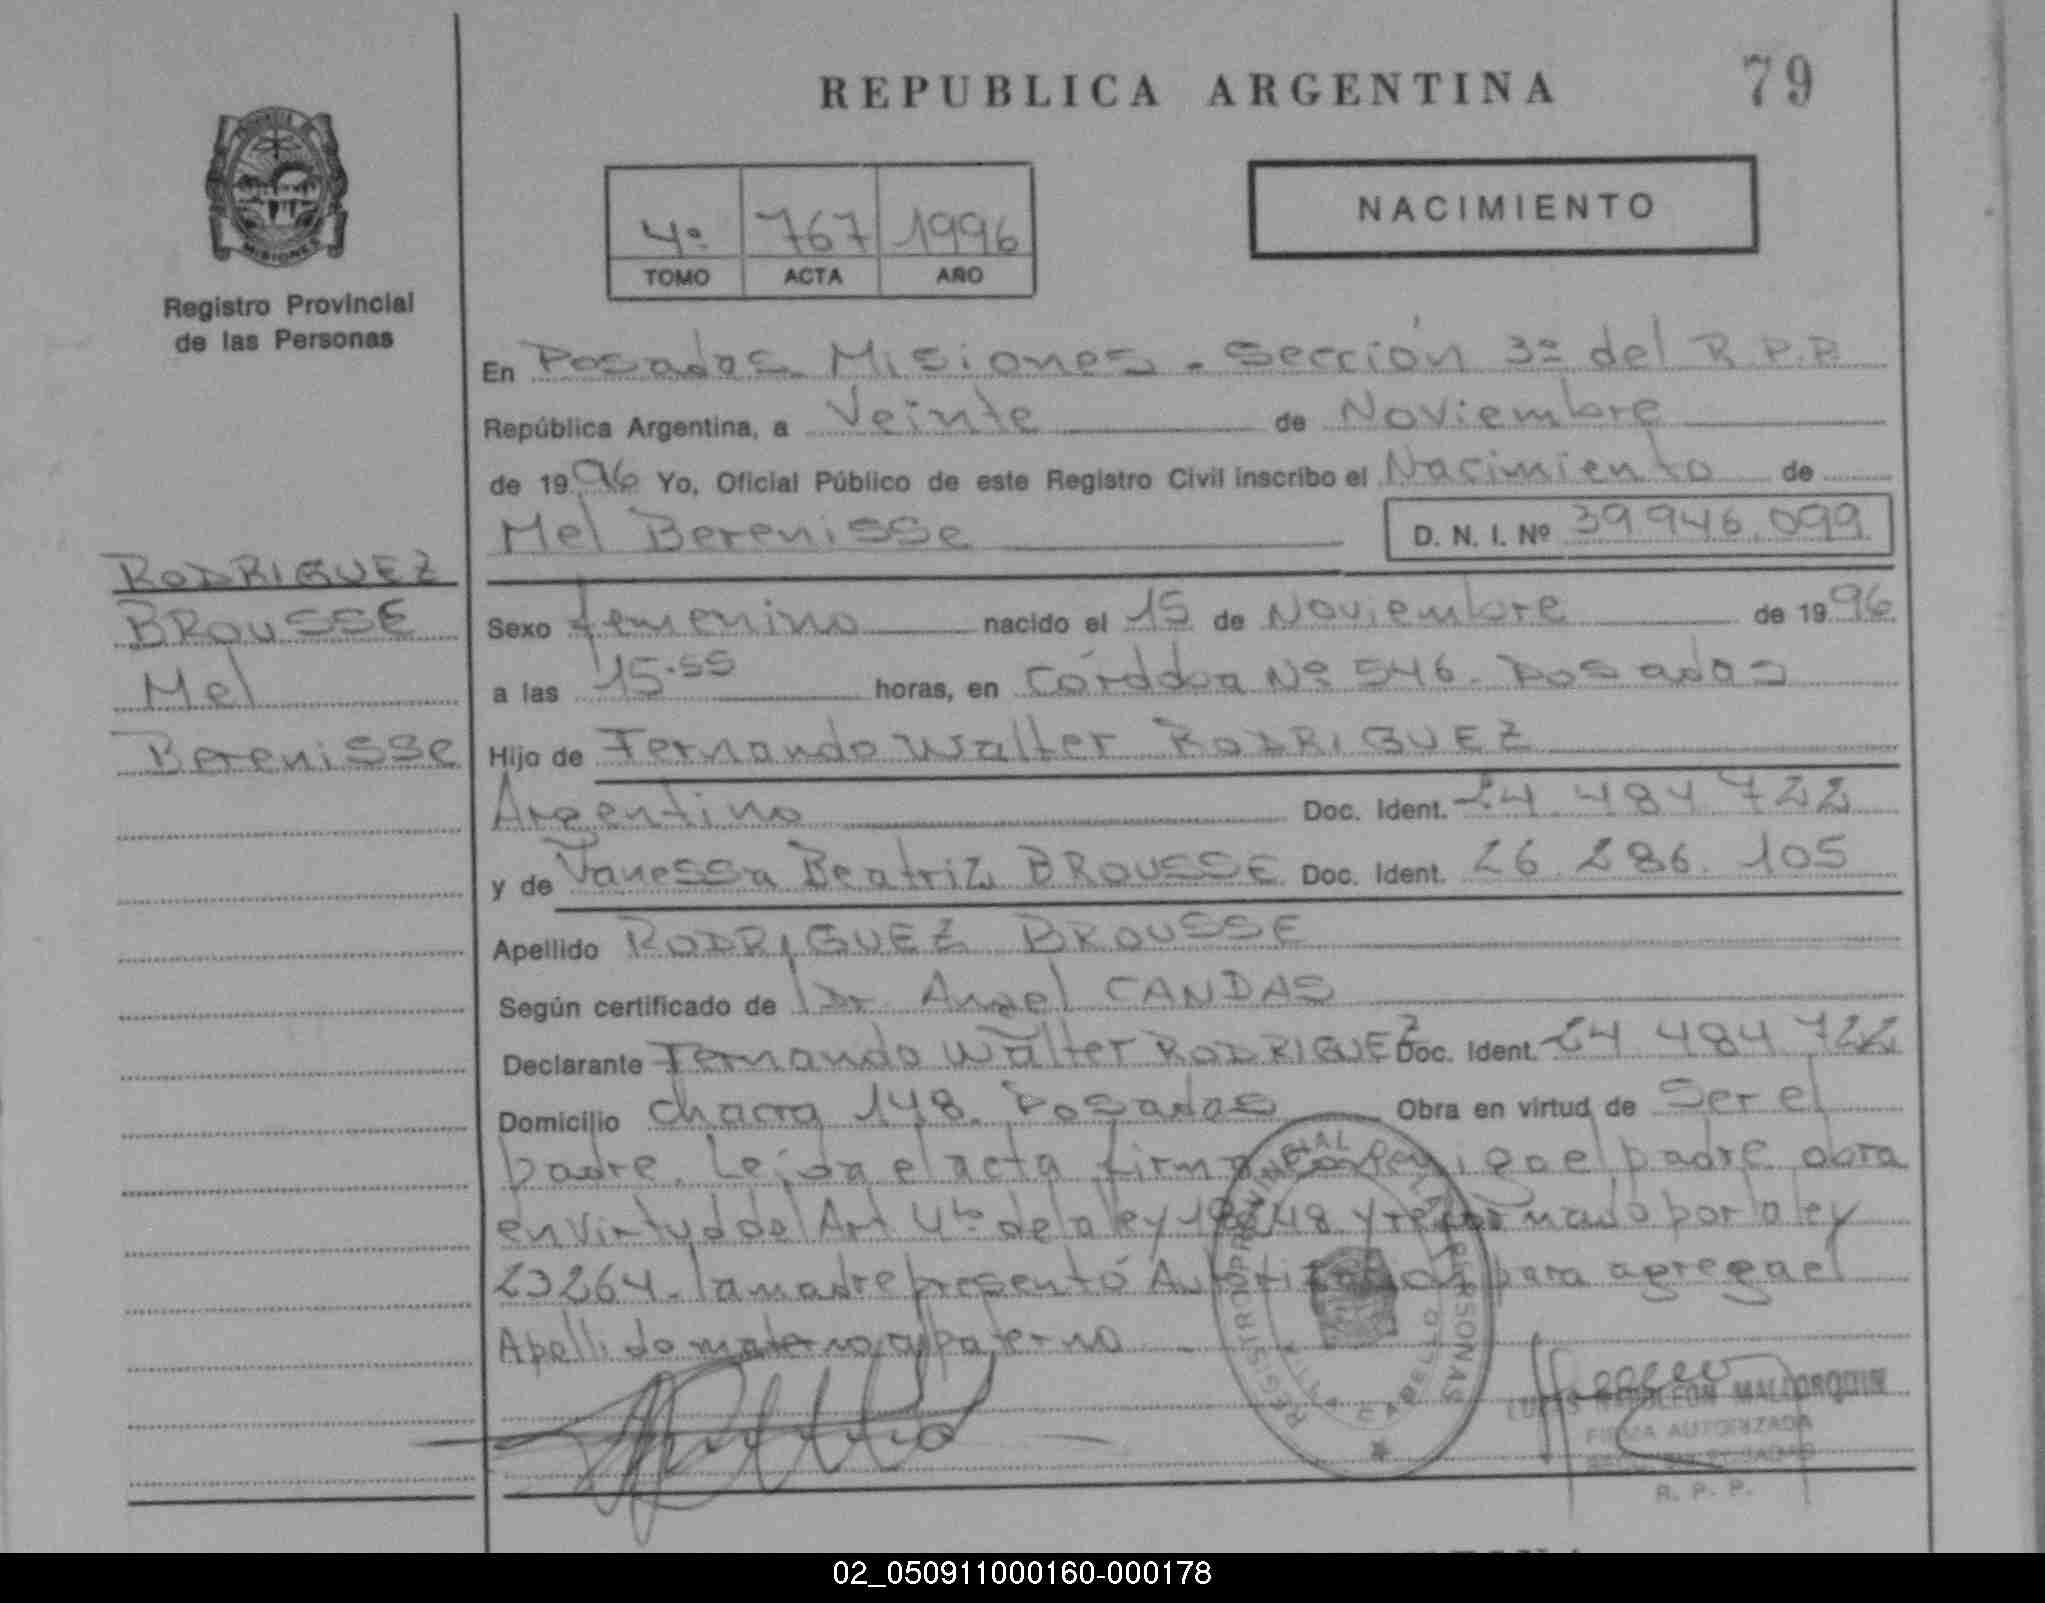 REPUBLICA ARGENTINA 79
PROVINCIA DE MISIONES
Registro Provincial
de las Personas
4º 767 1996
TOMO ACTA AÑO
NACIMIENTO
En Posadas Misiones - Sección 3º del R.P.P.
República Argentina, a Veinte de Noviembre
de 1996 Yo, Oficial Público de este Registro Civil inscribo el Nacimiento de
Mel Berenisse D. N. I. Nº 39 946.099
RODRIGUEZ
BROUSSE
Mel
Berenisse
Sexo femenino nacido el 15 de Noviembre de 1996
a las 15.55 horas, en Córddoa Nº 546. Posadas
Hijo de Fernando Walter RODRIGUEZ
Argentino Doc. Ident. 24 484 722
y de Vanessa Beatriz BROUSSE Doc. Ident. 26 286. 105
Apellido RODRIGUEZ BROUSSE
Según certificado de Dr Angel CANDAS
Declarante Fernando Walter RODRIGUEZ Doc. Ident. 24 484 722
Domicilio chacra 148. Posadas Obra en virtud de Ser el
padre. Leida el acta firma el padre obra
en virtud del Art 4to de la ley y reformado por la ley
23264. la madre presentó para agregael
Apellido materno al paterno
REGISTRO PROVINCIAL DE LAS PERSONAS
MALLORQUIN
FIRMA AUTORIZADA
R. P. P.
02_050911000160-000178